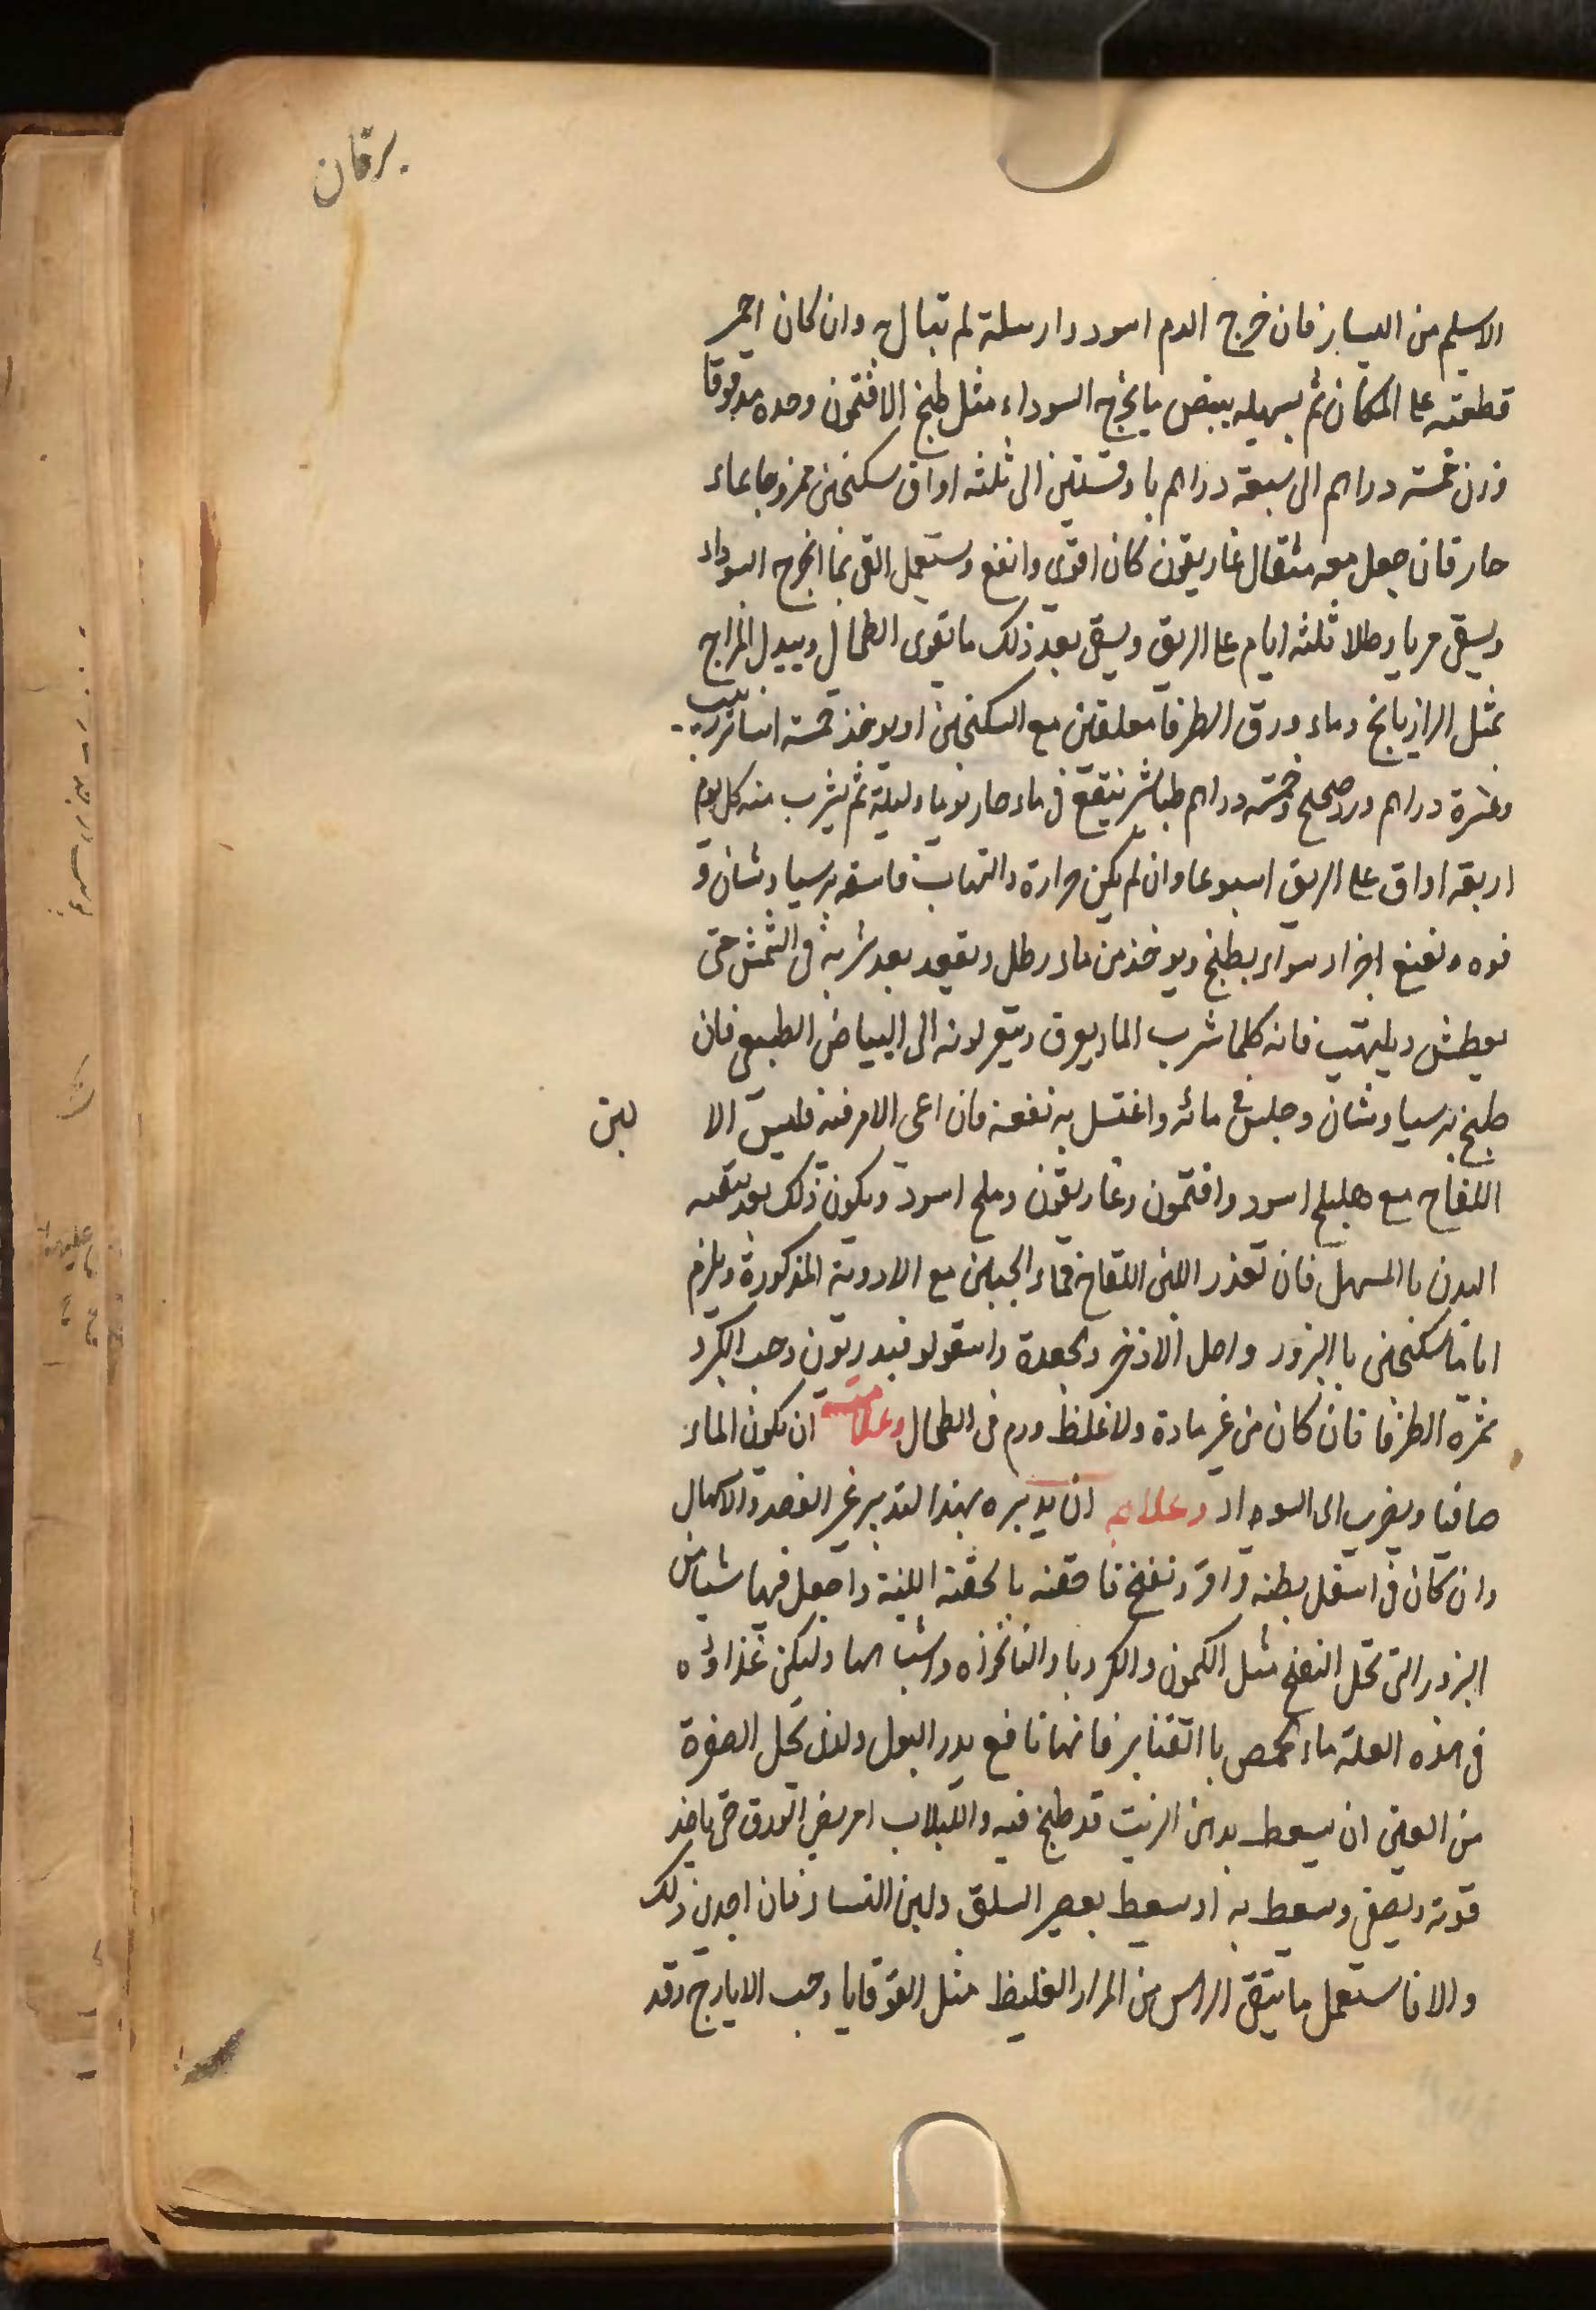 يرقان
الاسيلم من اليسار فان خرج الدم اسود دارسلة لم تبال به وان كان احمر
قطعته على المكان ثم يسهله ببعض ما يخرج السوداء مثل طبخ الافتمون وحده مدقوقا
وزن خمسة دراهم الى سبعة دراهم باوقيتين الى ثلثه اواق سكنجبين ممزوجا بماء
حار فان جعل معه مثقال غاريقون كان اقوى وانفع ويستعمل القى بما اخرج السوداء
ويسقى مريا وطلا ثلثه ايام على الريق ويسقى بعد ذلك ما يقوى الطحال ويبدل المزاج
بمثل الرازيانج وماء ورق الطرفا معلقتين مع السكنجبين او يوخذ خمسة اساتر زبيب
وعشرة دراهم ورد صحيح وخمسة دراهم طباشير ينقع في ماء حار يوما وليلة ثم يشرب منه كل يوم
اربعة اواق على الريق اسبوعا وان لم يكن حرارة والتهاب فاسقه برسياوشان و
فوه ونعنع اجزاء سواء يطبخ ويوخذ من ماءه رطل ويقعد بعد شربه في الشمس حتى
يعطش ويلتهب فانه كلما شرب الماء يعرق ويتغير لونه الى البياض الطبيعى فان
طبخ برسياوشان وجلس في مائه واغتسل به نفعه فان اعى الامر فيه فليس الا لبن
اللقاح مع هليلج اسود وافتمون وغاريقون وملح اسود ويكون ذلك بعد تنقيه
البدن باالمسهل فان تعذر اللبن اللقاح فماء الجبن مع الادوية المذكورة ويلزم
اياما سكنجبين باالبزور واصل الاذخر والجعدة واسقولوفندريون وحب الكرد
ثمرة الطرفا فان كان من غير مادة ولا غلظ ورم في الطحال وعلامته ان يكون الماء
صافيا ويضرب الى السواد وعلاجه ان يدبره بهذا التدبير غير الفصد والاسهال
وان كان في اسفل بطنه قراقر ونفخ فاحقنه بالحقنة اللينة واجعل فيها شيا من
البزور التى تحل النفخ مثل الكمون والكرويا والنانخواه واشباهها وليكن غذاوه
في هذه العلة ماء حمص باالقنابر فانها نافع يدر البول ولون تحل الصفرة
من العين ان يسعط بدهن الزيت قد طبخ فيه واللبلاب العريض الورق حتى ياخذ
قوته ويصفى ويسعط به او يسعط بعصير السلق ولبن النساء فان اجدى ذلك
والا فاستعمل ما ينقى الراس من المرار الغليظ مثل القوقايا وحب الايارج وقد